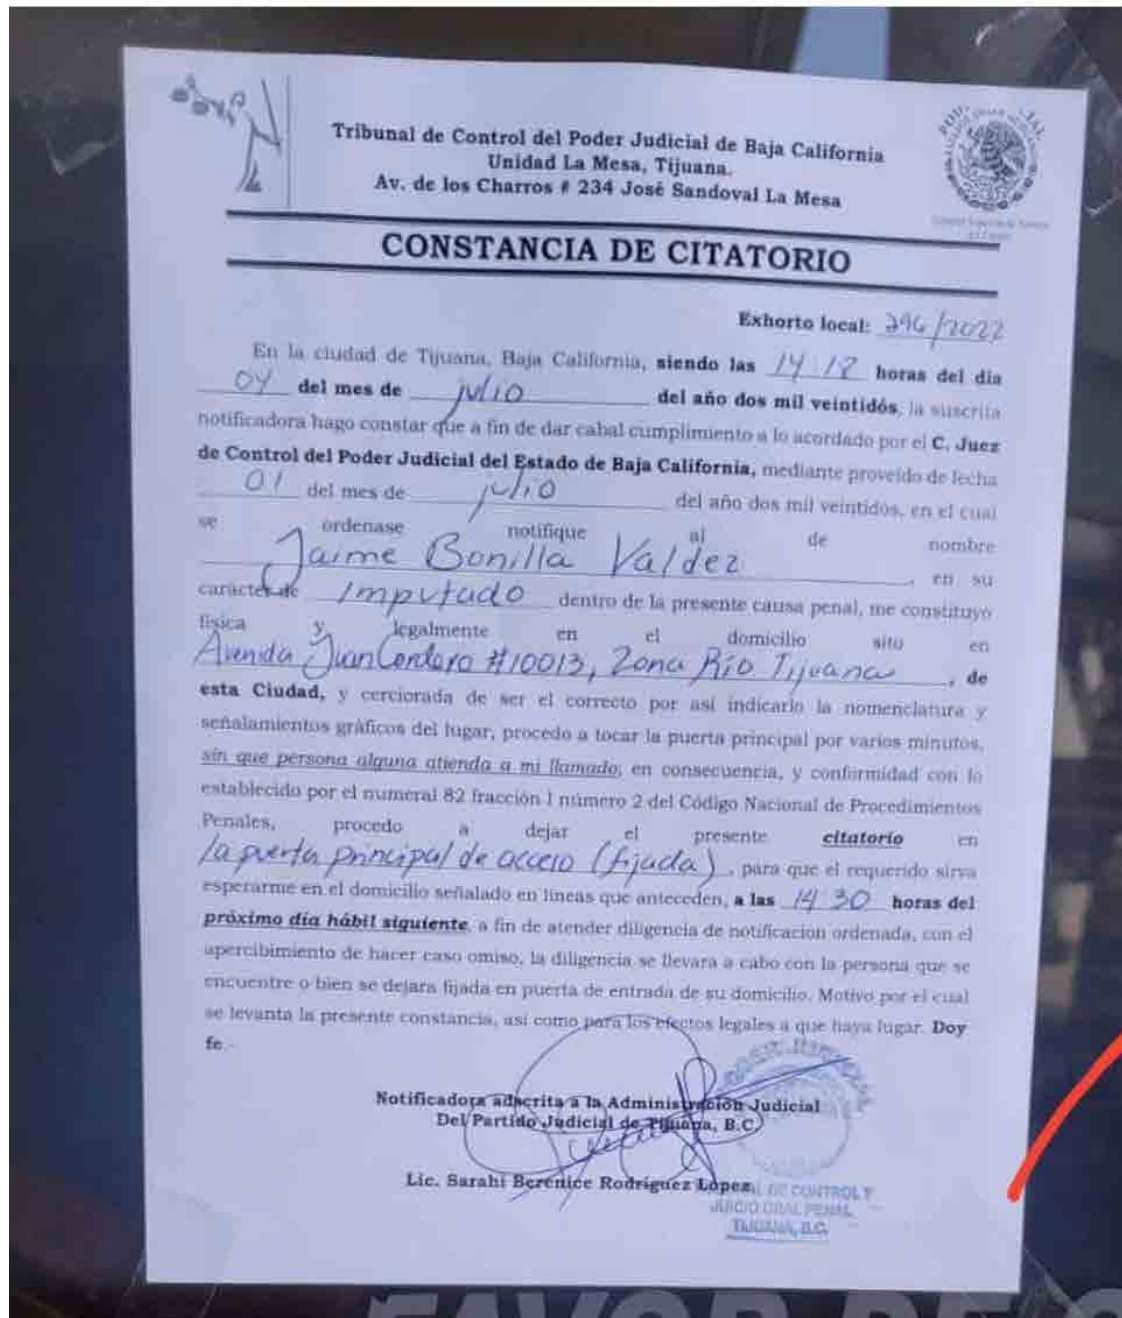 Tribunal de Control del Poder Judicial de Baja California
Unidad La Mesa, Tijuana.
Av. de los Charros # 234 José Sandoval La Mesa
CONSTANCIA DE CITATORIO
Exhorto local: 396/2022
En la ciudad de Tijuana, Baja California, siendo las 14 12 horas del día
04 del mes de julio del año dos mil veintidós, la suscrita
notificadora hago constar que a fin de dar cabal cumplimiento a lo acordado por el C. Juez
de Control del Poder Judicial del Estado de Baja California, mediante proveído de fecha
01 del mes de julio del año dos mil veintidos, en el cual
se ordenase notifique al de nombre
Jaime Bonilla Valdez, en su
carácter de Imputado dentro de la presente causa penal, me constituyo
física y legalmente en el domicilio sito en
Avenida Juan Cordero #10013, Zona Río Tijuana, de
esta Ciudad, y cerciorada de ser el correcto por así indicarlo la nomenclatura y
señalamientos gráficos del lugar, procedo a tocar la puerta principal por varios minutos,
sin que persona alguna atienda a mi llamado; en consecuencia, y conformidad con lo
establecido por el numeral 82 fracción I número 2 del Código Nacional de Procedimientos
Penales, procedo a dejar el presente citatorio en
la puerta principal de acceso (fijada), para que el requerido sirva
esperarme en el domicilio señalado en líneas que anteceden, a las 14 30 horas del
próximo día hábil siguiente, a fin de atender diligencia de notificación ordenada, con el
apercibimiento de hacer caso omiso, la diligencia se llevara a cabo con la persona que se
encuentre o bien se dejara fijada en puerta de entrada de su domicilio. Motivo por el cual
se levanta la presente constancia, así como para los efectos legales a que haya lugar. Doy
fe.-
Notificadora adscrita a la Administración Judicial
Del Partido Judicial de Tijuana, B.C.
Lic. Sarahi Berenice Rodríguez López
DE CONTROL Y
JUICIO ORAL PENAL
TIJUANA, B.C.
FAVOR DE